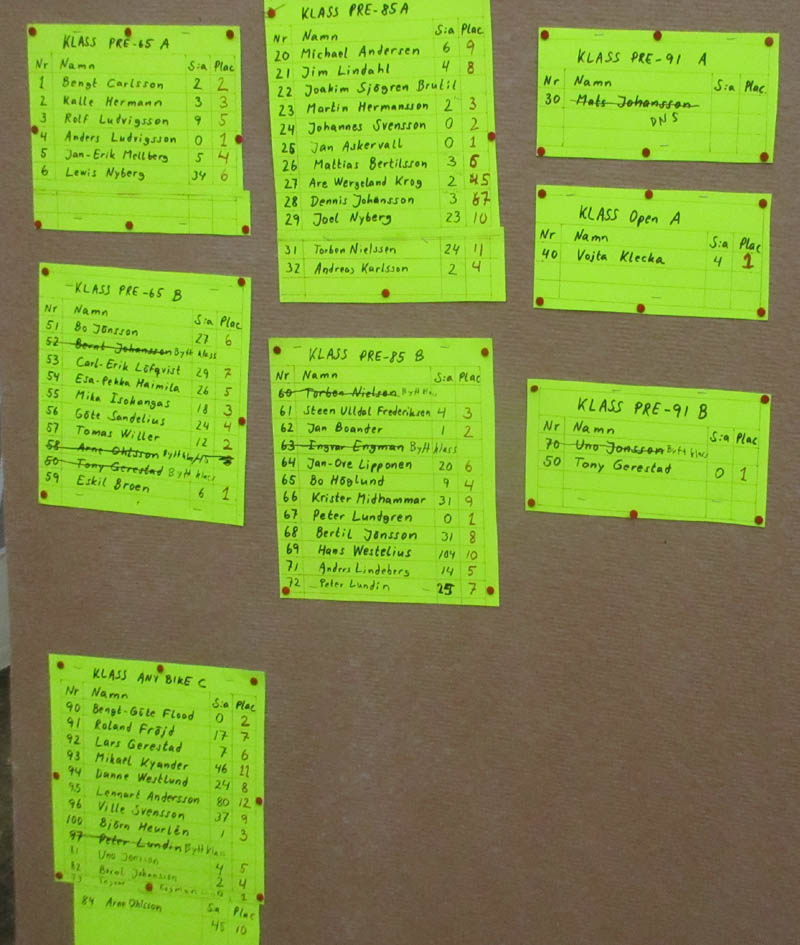 KLASS PRE-65 A
Nr Namn S:a Plac
1 Bengt Carlsson 2 2
2 Kalle Hermann 3 3
3 Rolf Ludvigsson 9 5
4 Anders Ludvigsson 0 1
5 Jan-Erik Mellberg 5 4
6 Lewis Nyberg 34 6
KLASS PRE-65 B
Nr Namn S:a Plac
51 Bo Jönsson 27 6
52 Bernt Johansson Bytt klass
53 Carl-Erik Löfqvist 29 7
54 Esa-Pekka Haimila 26 5
55 Mika Isokangas 18 3
56 Göte Sandelius 24 4
57 Tomas Willer 12 2
58 Arne Ohlsson Bytt klass
50 Tony Gerestad Bytt klass
59 Eskil Broen 6 1
KLASS ANY BIKE C
Nr Namn S:a Plac
90 Bengt-Göte Flood 0 2
91 Roland Fröjd 17 7
92 Lars Gerestad 7 6
93 Mikael Kyander 46 11
94 Danne Westlund 24 8
95 Lennart Andersson 80 12
96 Ville Svensson 37 9
100 Björn Heurlén 1 3
97 Peter Lundin Bytt klass
81 Uno Jonsson 4 5
82 Bernt Johansson 2 4
Engman 0 1
S:a Plac
84 Arne Ohlsson 45 10
KLASS PRE-85 A
Nr Namn S:a Plac
20 Michael Andersen 6 9
21 Jim Lindahl 4 8
22 Joakim Sjögren Brutit
23 Martin Hermansson 2 3
24 Johannes Svensson 0 2
25 Jan Askervall 0 1
26 Mattias Bertilsson 3 6
27 Are Wergeland Krog 2 5
28 Dennis Johansson 3 7
29 Joel Nyberg 23 10
31 Torben Nielssen 24 11
32 Andreas Karlsson 2 4
KLASS PRE-85 B
Nr Namn S:a Plac
60 Torben Nielsen Bytt klass
61 Steen Ulldal Frederiksen 4 3
62 Jan Boander 1 2
63 Ingvar Engman Bytt klass
64 Jan-Ove Lipponen 20 6
65 Bo Höglund 9 4
66 Krister Midhammar 31 9
67 Peter Lundgren 0 1
68 Bertil Jonsson 31 8
69 Hans Westelius 104 10
71 Anders Lindeberg 14 5
72 Peter Lundin 25 7
KLASS PRE-91 A
Nr Namn S:a Plac
30 Mats Johansson
DNS
KLASS Open A
Nr Namn S:a Plac
40 Vojta Klecka 4 1
KLASS PRE-91 B
Nr Namn S:a Plac
70 Uno Jonsson Bytt klass
50 Tony Gerestad 0 1